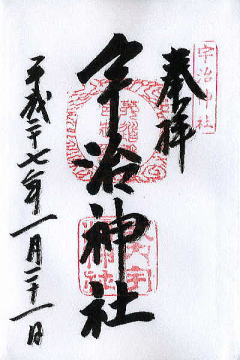 宇治神社
奉拝
宇治神社
平成二十七年一月二十一日